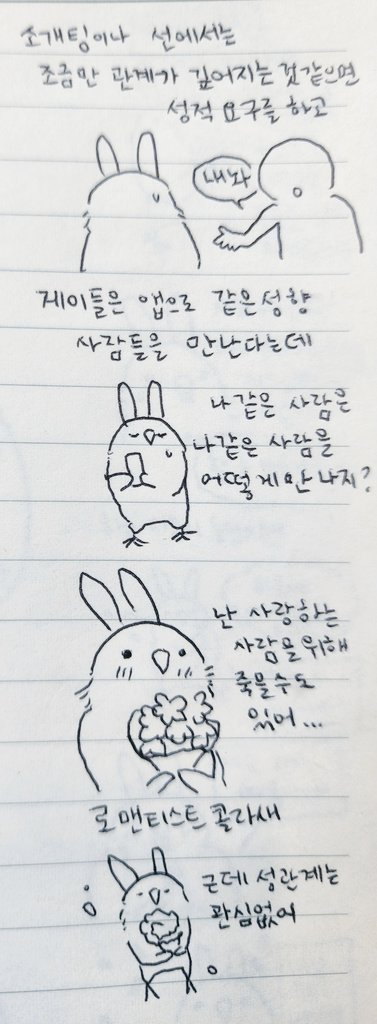 소개팅이나 선에서는
조금만 관계가 깊어지는 것같으면
성적 요구를 하고
내놔
게이들은 앱으로 같은성향
사람들을 만난다는데
나같은 사람은
나같은 사람을
어떻게만나지?
난 사랑하는
사람을위해
죽을수도
있어...
로맨티스트 콜라새
근데 성관계는
관심없어